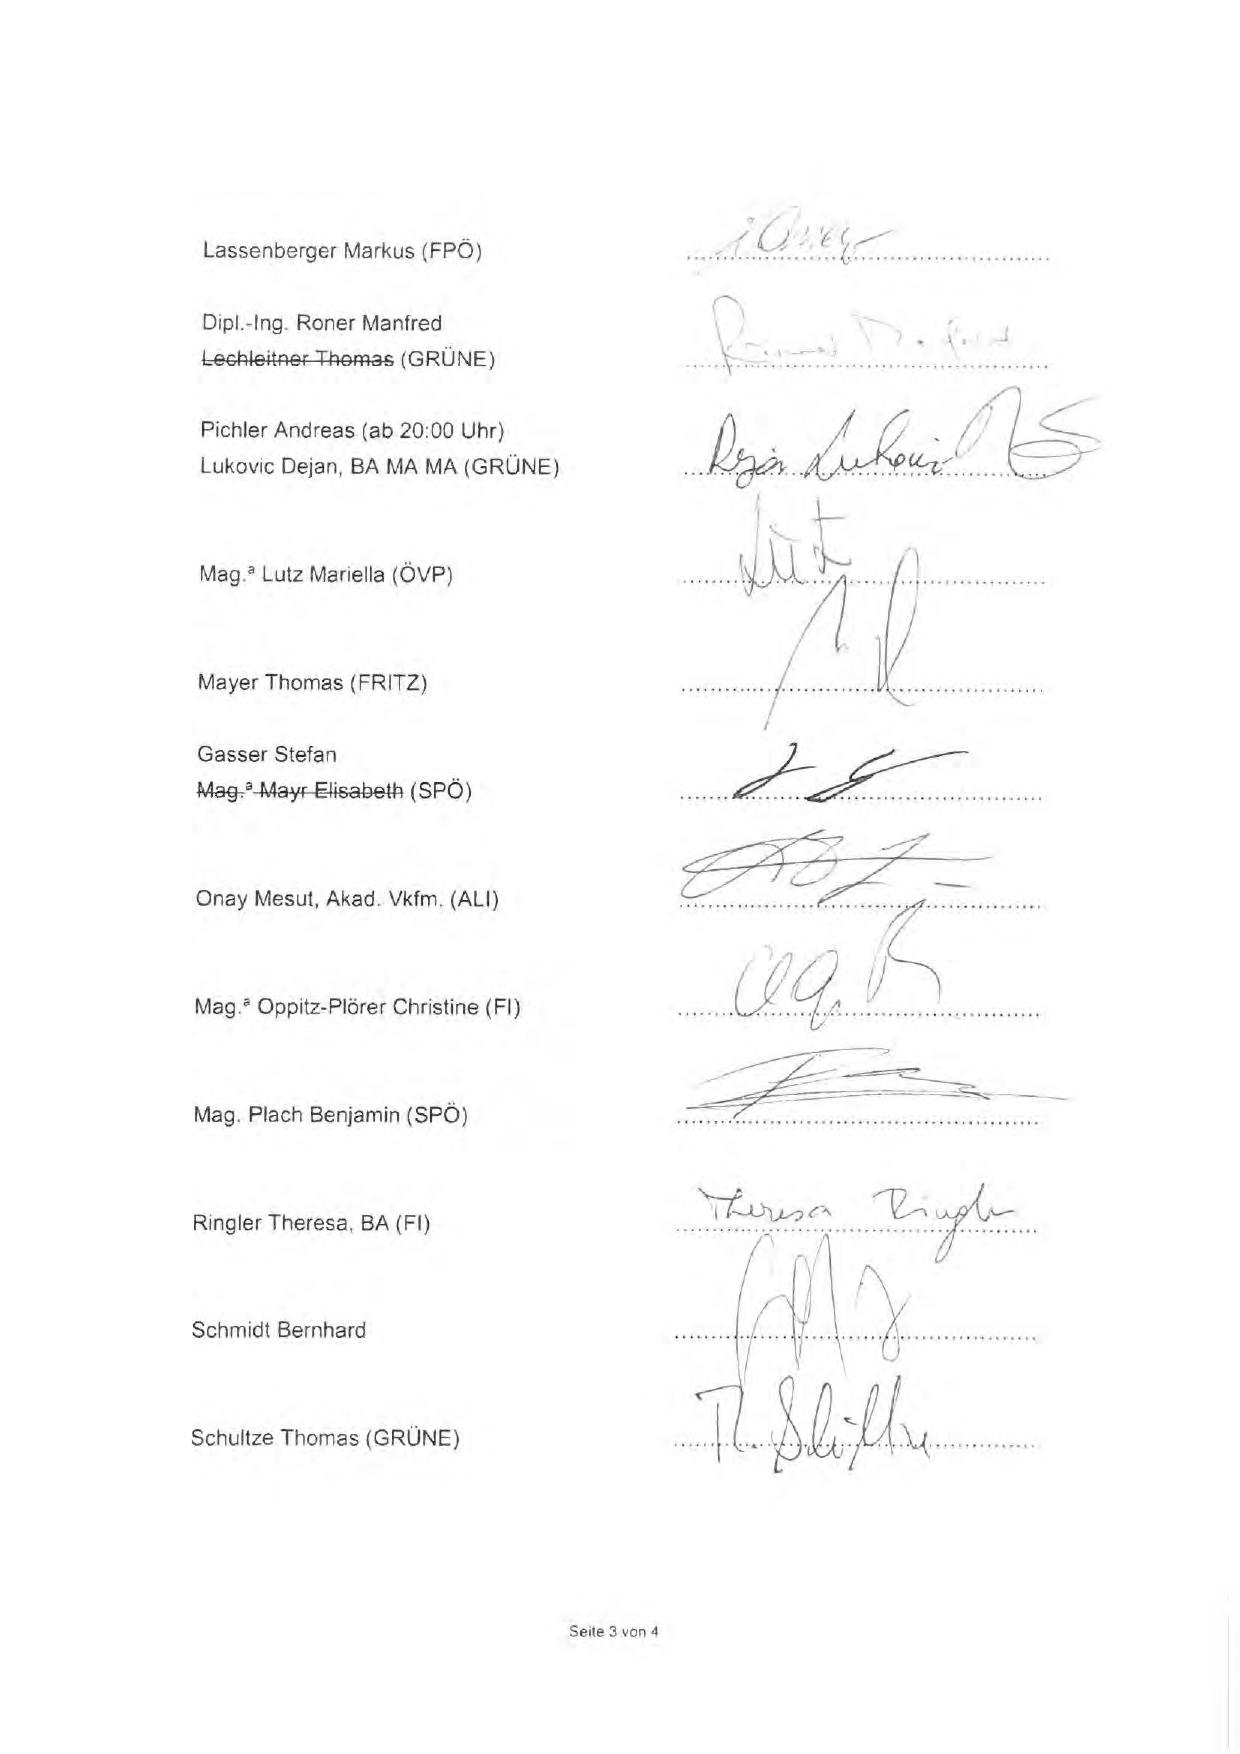 Lassenberger Markus (FPÖ)
Dipl.-Ing. Roner Manfred
Lechleitner Thomas (GRÜNE)
Pichler Andreas (ab 20:00 Uhr)
Lukovic Dejan, BA MA MA (GRÜNE)
Mag.ª Lutz Mariella (ÖVP)
Mayer Thomas (FRITZ)
Gasser Stefan
Mag.ª Mayr Elisabeth (SPÖ)
Onay Mesut, Akad. Vkfm. (ALI)
Mag.ª Oppitz-Plörer Christine (FI)
Mag. Plach Benjamin (SPÖ)
Ringler Theresa, BA (FI) Theresa Ringler
Schmidt Bernhard
Schultze Thomas (GRÜNE)
Seite 3 von 4